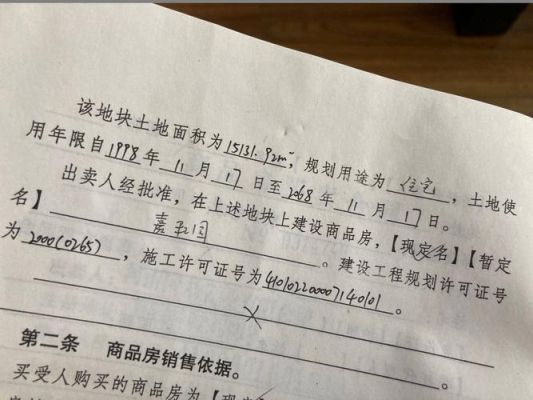 该地块土地面积为15131.92m²,规划用途为 住宅 ,土地使
用年限自1998年 11 月 17 日至2068年 11 月 17日。
出卖人经批准,在上述地块上建设商品房,【现定名】【暂定
名】 。建设工程规划许可证号
为2000(0265),施工许可证号为410102200007140101。
第二条 商品房销售依据。
买受人购买的商品房为【现